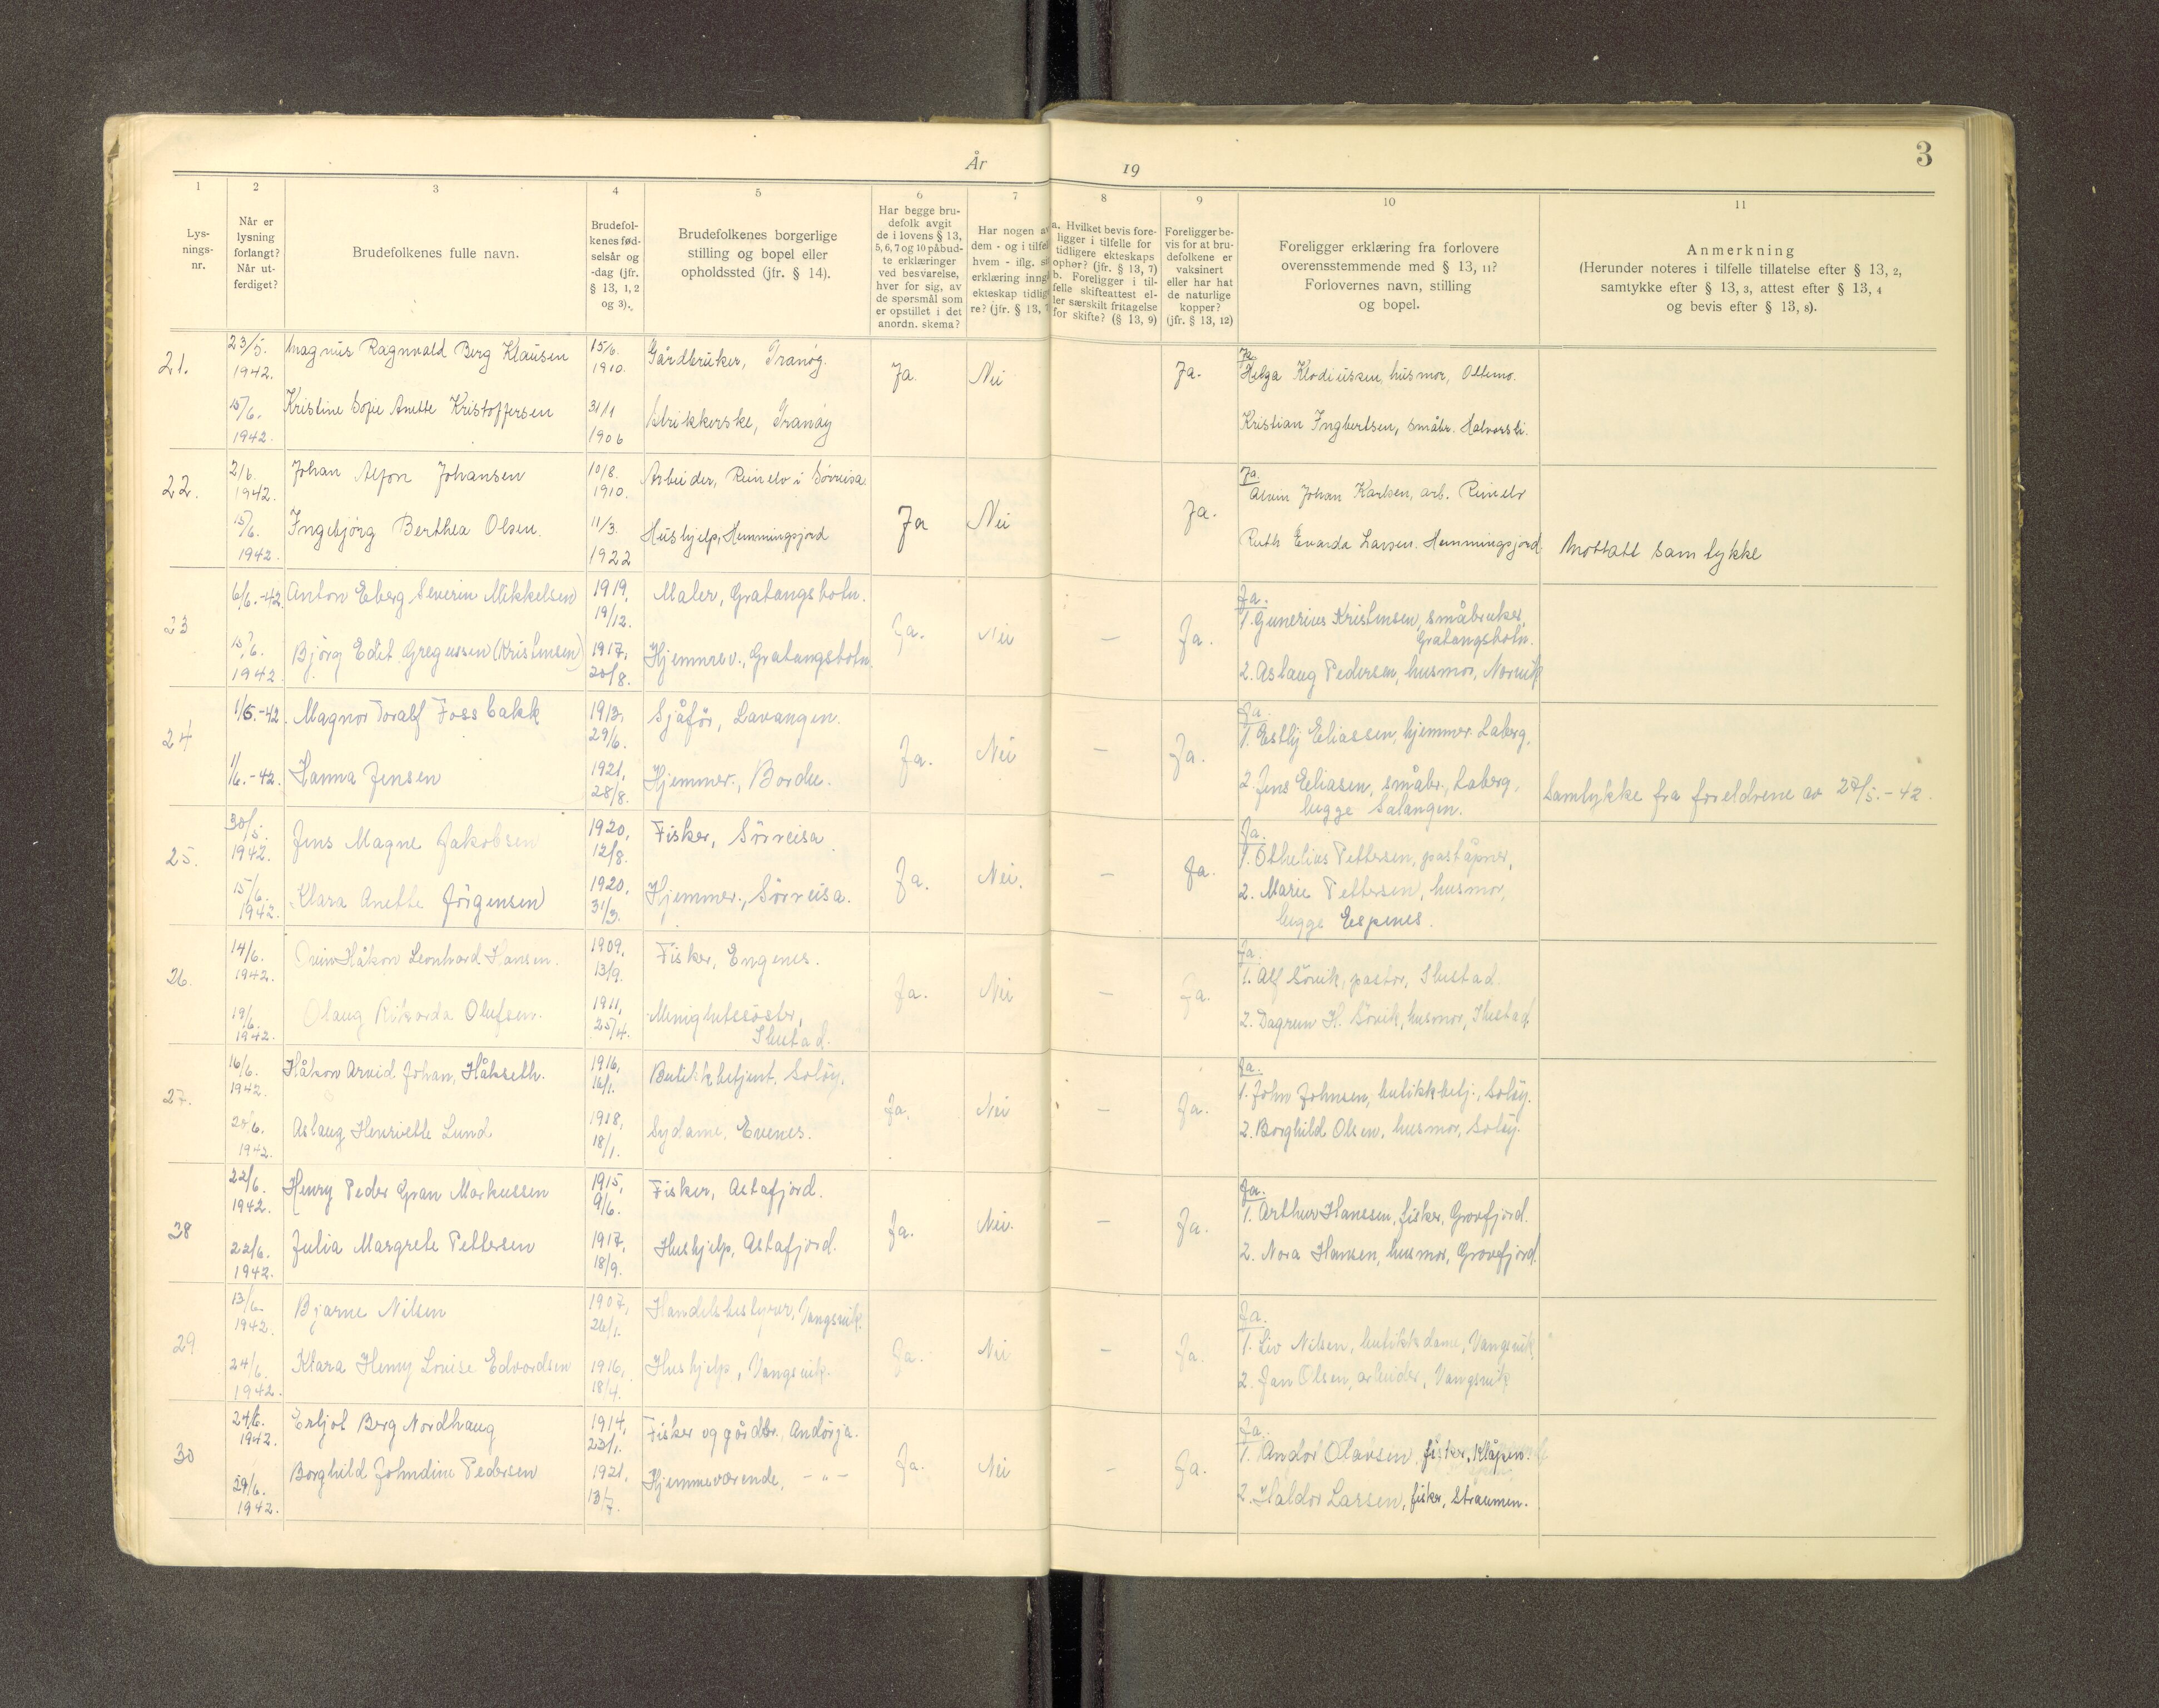 År 19
3
1 2 3 4 5 6 7 8 9 10 11
Lys-
nings-
nr.
Når er
lysning
forlangt?
Når ut-
ferdiget?
Brudefolkenes fulle navn.
Brudefol-
kenes fød-
selsår og
-dag (jfr.
§ 13, 1, 2
og 3).
Brudefolkenes borgerlige
stilling og bopel eller
opholdssted (jfr. § 14).
Har begge bru-
defolk avgit
de i lovens § 13,
5, 6, 7 og 10 påbud-
te erklæringer
ved besvarelse,
hver for sig, av
de spørsmål som
er opstillet i det
anordn. skema?
Har nogen a
dem - og i tilfel
hvem - iflg. s
erklæring inng
ekteskap tidlig
re? (jfr. § 13, 7
a. Hvilket bevis fore-
ligger i tilfelle for
tidligere ekteskaps
ophør? (jfr. § 13, 7)
b. Foreligger i til-
felle skifteattest el-
ler særskilt fritagelse
for skifte? (§ 13, 9)
Foreligger be-
vis for at bru-
defolkene er
vaksinert
eller har hat
de naturlige
kopper?
(jfr. § 13, 12)
Foreligger erklæring fra forlovere
overensstemmende med § 13, 11?
Forlovernes navn, stilling
og bopel.
Anmerkning
(Herunder noteres i tilfelle tillatelse efter § 13, 2,
samtykke efter § 13, 3, attest efter § 13, 4
og bevis efter § 13, 8).
21. 23/5. 1942. Magnus Ragnvald Berg Klausen 15/6. 1910. Gårdbruker, Tranøy. Ja. Nei Ja. Ja
Helga Klodiussen, husmor, Oltemo.
15/6. 1942. Kristine Sofie Anette Kristoffersen 31/1 1906 Strikkerske, Tranøy
Kristian Ingbertsen, småbr. Halvorsli.
22. 2/6. 1942. Johan Alfon Johansen 10/8. 1910. Arbeider, Reinelv i Sørreisa Ja Nei Ja. Ja
Alvin Johan Karlsen, arb. Reinelv
15/6. 1942. Ingebjörg Berthea Olsen. 11/3. 1922 Hushjelp, Hemmingsjord
Ruth Evarda Larsen. Hemmingsjord. Mottatt samtykke
23 6/6.-42. Anton Eberg Severin Mikkelsen 1919, 19/12. Maler, Gratangsbotn. Ja. Nei — Ja. Ja.
1. Gunerius Kristensen, småbruker,
Gratangsbotn.
15/6. 1942 Bjørg Edit Gregussen (Kristensen) 1917, 20/8. Hjemmev., Gratangsbotn.
2. Aslaug Pedersen, husmor, Narvik
24 1/6.-42. Magnor Toralf Fossbakk 1913, 29/6. Sjåfør, Lavangen. Ja. Nei — Ja. Ja.
1. Esthj Eliassen, hjemmev. Laberg,
1/6.-42. Hanna Jensen 1921, 28/8. Hjemmev., Bardu.
2. Jens Eliasen, småbr., Laberg,
begge Salangen. Samtykke fra foreldrene av 27/5.-42.
25. 30/5. 1942. Jens Magne Jakobsen 1920, 12/8. Fisker, Sörreisa. Ja. Nei. — Ja. Ja.
1. Othelius Pettersen, poståpner,
15/6. 1942. Klara Anette Jörgensen 1920, 31/3. Hjemmev., Sörreisa.
2. Marie Pettersen, husmor,
begge Espenes.
26. 14/6. 1942. Håkon Leonhard Hansen. 1909, 13/9. Fisker, Engenes. Ja. Nei — Ja. Ja.
1. Alf Sövik, pastor, Ibestad.
19/6. 1942. Olaug Rikarda Olufsen. 1911, 25/4. Menighetssöster,
Ibestad.
2. Dagrun H. Sövik, husmor, Ibestad.
27. 16/6. 1942. Håkon Arvid Johan, Håkseth. 1916, 16/1. Butikkbetjent, Soløy. Ja. Nei — Ja. Ja.
1. John Johnsen, butikkbetj., Soløy.
20/6. 1942. Aslaug Henriette Lund 1918, 18/1. Sydame, Evenes.
2. Borghild Olsen, husmor, Soløy.
28 22/6. 1942. Henry Peder Gran Markussen 1915, 9/6. Fisker, Astafjord. Ja. Nei. — Ja. Ja.
1. Arthur Hanssen, fisker, Grovfjord.
22/6. 1942. Julia Margrete Pettersen 1917, 18/9. Hushjelp, Astafjord.
2. Nora Hansen, husmor, Grovfjord.
29 13/6. 1942. Bjarne Nilsen 1907, 26/1. Handelsbestyrer, Vangsvik. Ja. Nei — Ja. Ja.
1. Liv Nilsen, butikkdame, Vangsvik.
24/6. 1942. Klara Henny Louise Edvardsen 1916, 18/4. Hushjelp, Vangsvik.
2. Jan Olsen, arbeider, Vangsvik
30 24/6. 1942. Erljot Berg Nordhaug 1914, 23/1. Fisker og gårdbr., Andørja. Ja. Nei — Ja. Ja.
1. Andor Olavsen, fisker, Klåpen.
29/6. 1942. Borghild Johndine Pedersen 1921, 13/7. Hjemmeværende, -"-
2. Haldor Larsen, fisker, Straumen.